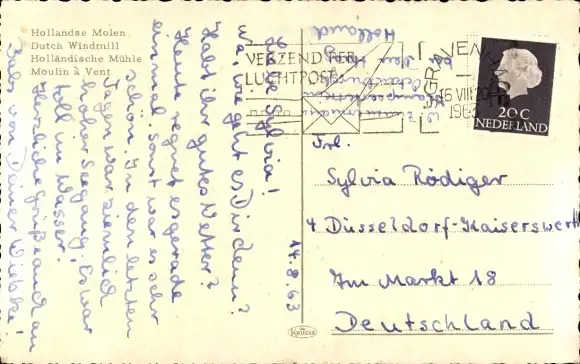 Hollandse Molen
Dutch Windmill
Holländische Mühle
Moulin à Vent
Liebe Sylvia!
Na, wie geht es Dir denn?
Habt ihr gutes Wetter?
Heute regnet es gerade
einmal. Sonst war es sehr
schön. In den letzten
Tagen war ziemlich
hoher Seegang. Es war
toll im Wasser!
Herzliche Grüße auch an
von Deiner
14.8.63
Holland
VERZEND PER
LUCHTPOST
'S GRAVEN
16 VIII
196
20 C
NEDERLAND
Frl.
Sylvia Rödiger
4 Düsseldorf-Kaiserswerth
Im Markt 18
Deutschland